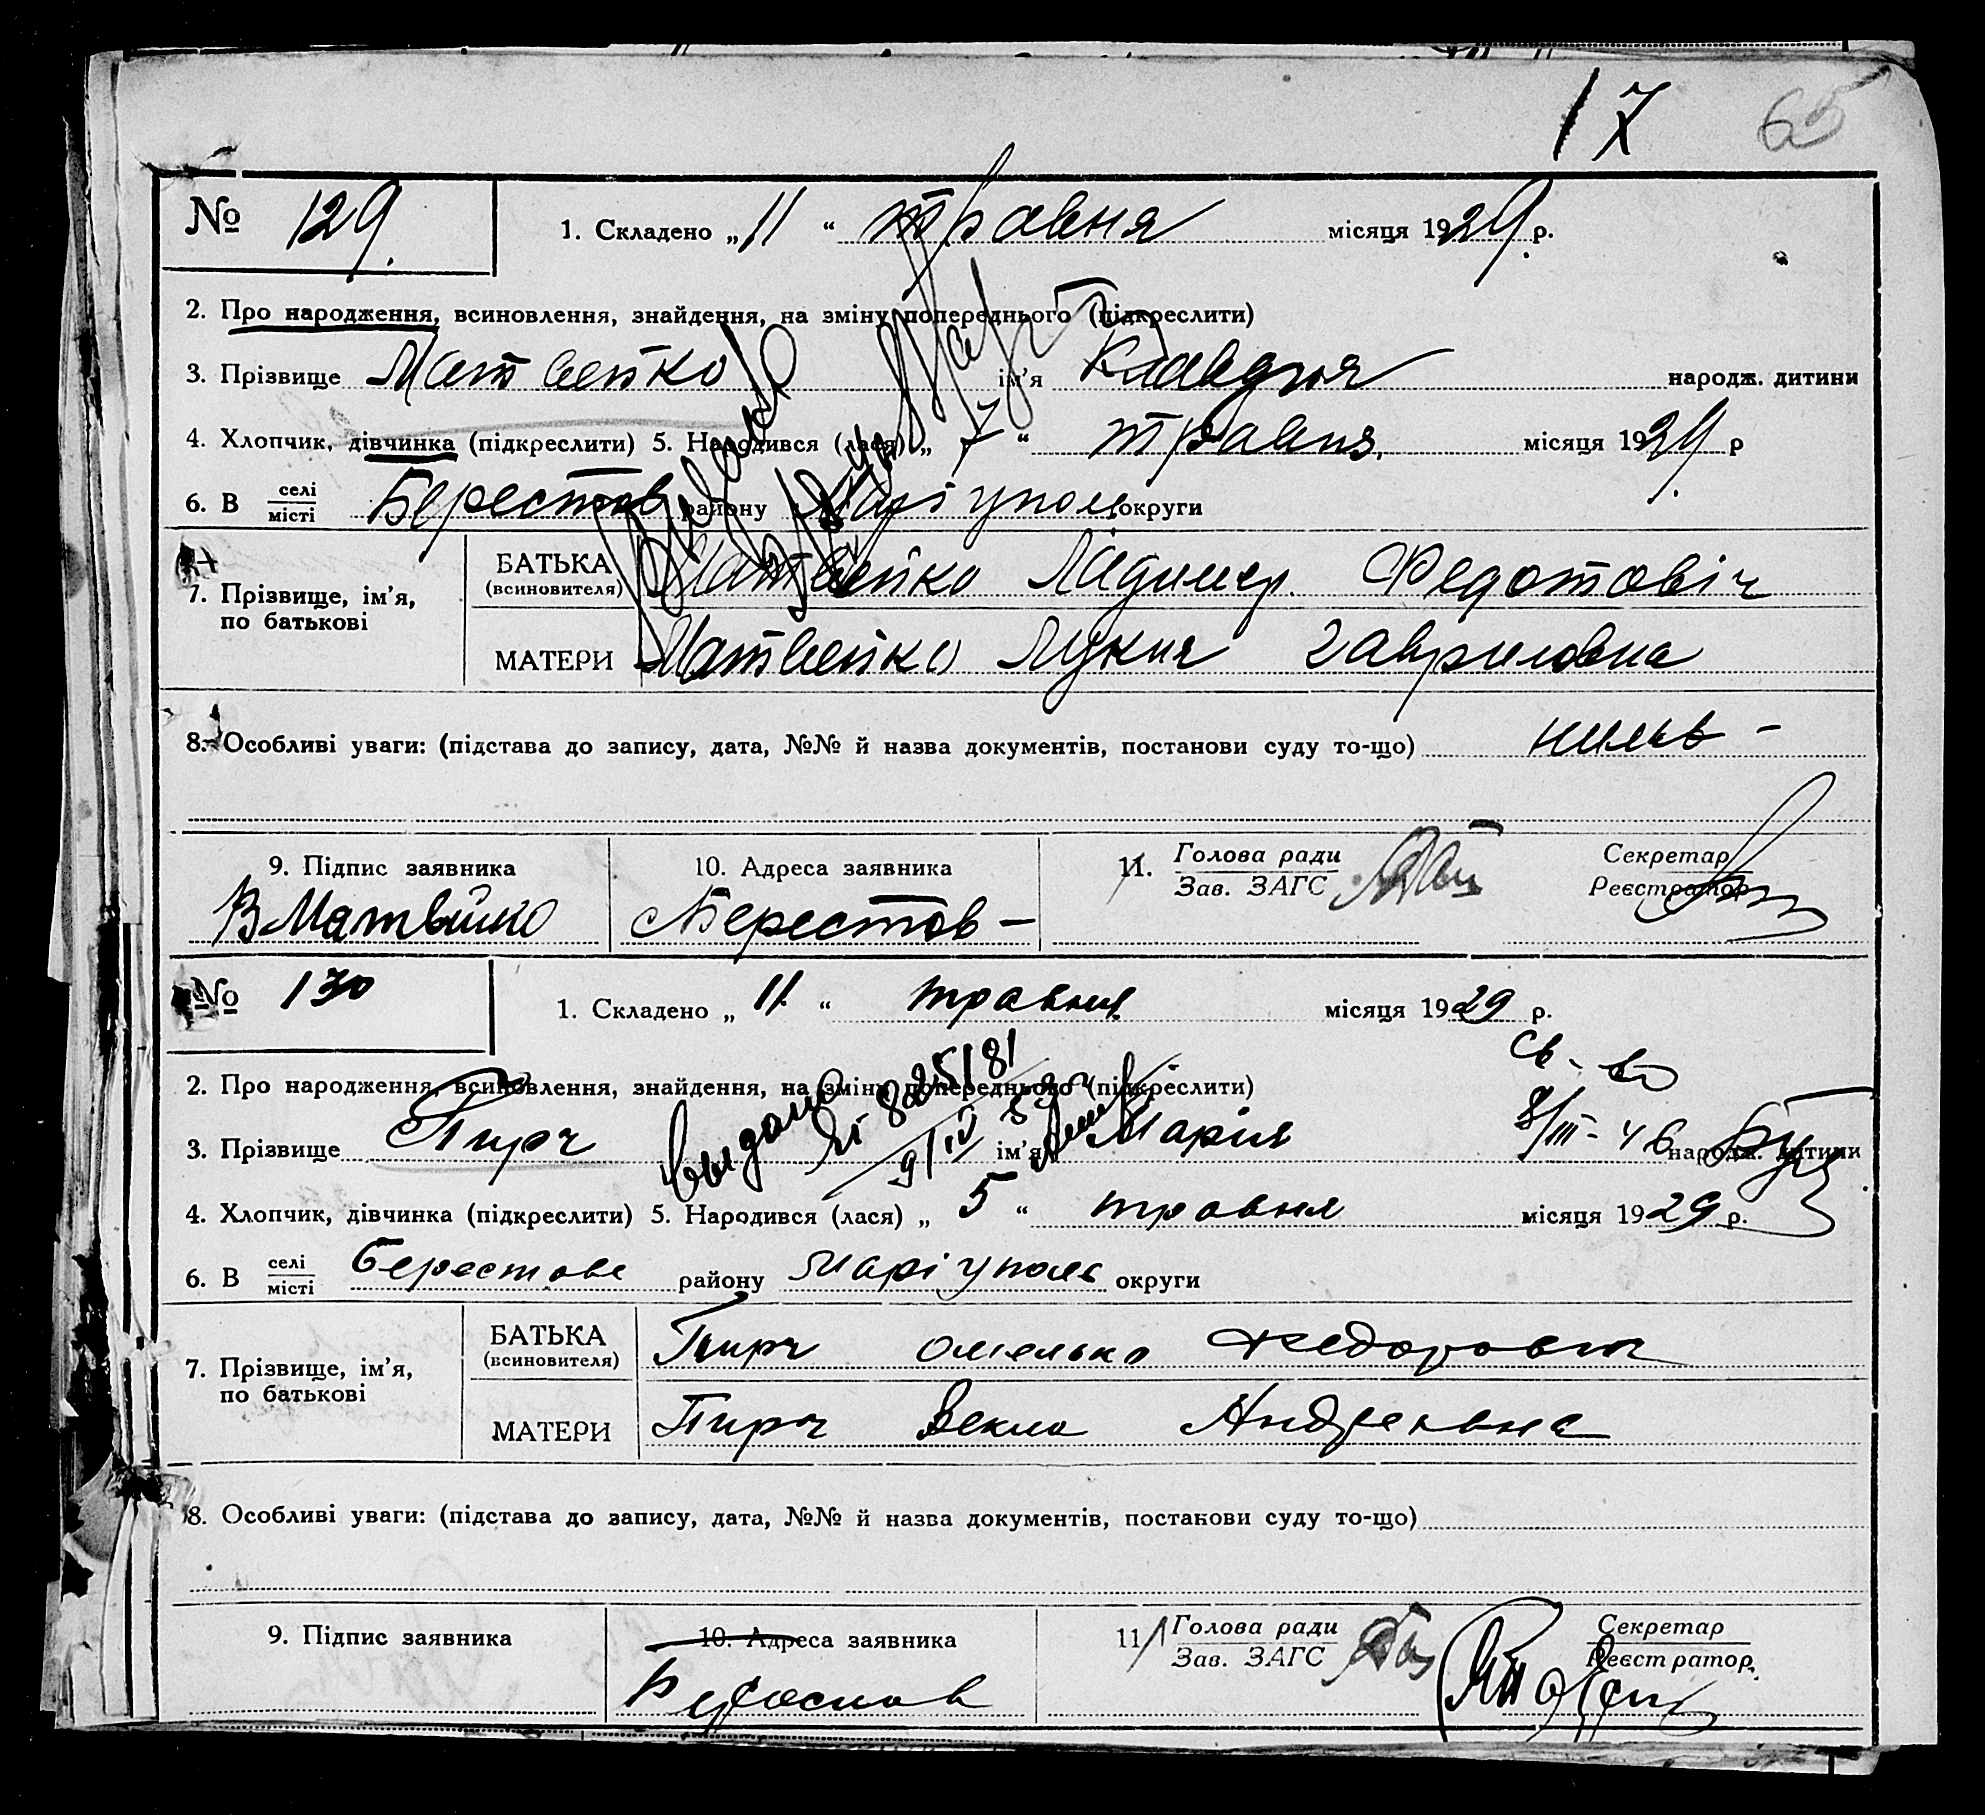 17 65
№ 129. 1. Складено „ 11 “ травня місяця 1929 р.
2. Про народження, всиновлення, знайдення, на зміну попереднього (підкреслити)
3. Прізвище Матвейко ім'я Клавдия народж. дитини
4. Хлопчик, дівчинка (підкреслити) 5. Народився (лася) „ 7 “ травня, місяця 1929 р
6. В селі місті Берестов району Маріуполь округи
7. Прізвище, ім'я, по батькові
БАТЬКА (всиновителя) Матвейко Федотовіч
МАТЕРИ Матвейко Лукия Гавриловна
8. Особливі уваги: (підстава до запису, дата, №№ й назва документів, постанови суду то-що)
9. Підпис заявника 10. Адреса заявника 11. Голова ради Зав. ЗАГС Секретар Реєстратор
В Матвійко Берестов —
№ 130 1. Складено „ 11 “ травня місяця 1929 р.
Св-во
2. Про народження, всиновлення, знайдення, на зміну попереднього (підкреслити)
выдано 825181
3. Прізвище Пирч ім'я Марія народж. дитини
8/III-46
9/IV
4. Хлопчик, дівчинка (підкреслити) 5. Народився (лася) „ 5 “ травня місяця 1929 р.
6. В селі місті Берестове району Маріуполь округи
7. Прізвище, ім'я, по батькові
БАТЬКА (всиновителя) Пирч Омелько Федорович
МАТЕРИ Пирч Векла Андреевна
8. Особливі уваги: (підстава до запису, дата, №№ й назва документів, постанови суду то-що)
9. Підпис заявника 10. Адреса заявника 11 Голова ради Зав. ЗАГС Секретар Реєстратор